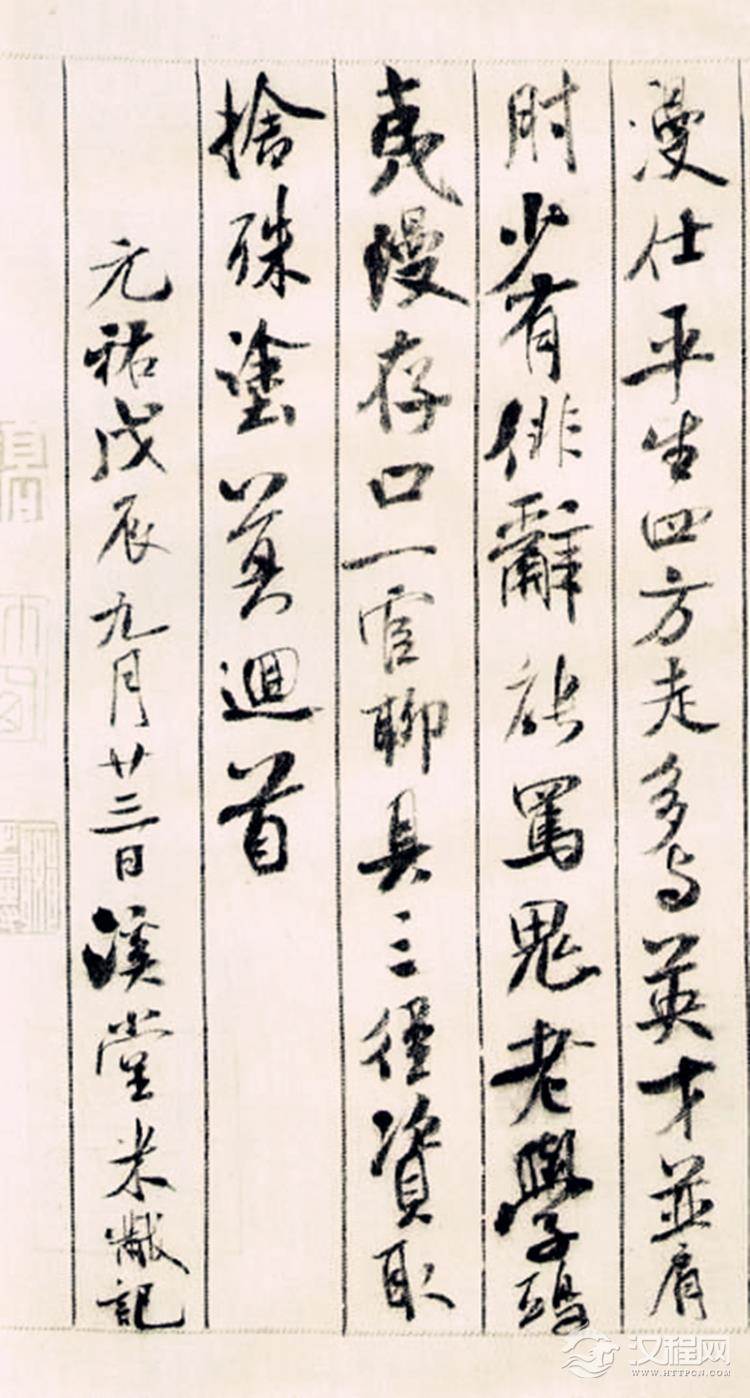 漫仕平生四方走多与英才並肩
肘少有俳辭能罵鬼老學鴟
夷漫存口一官聊具三徑資取
捨殊塗莫迴首
元祐戊辰九月廿三日溪堂米黻記
汉程网
WWW.HTTPCN.COM